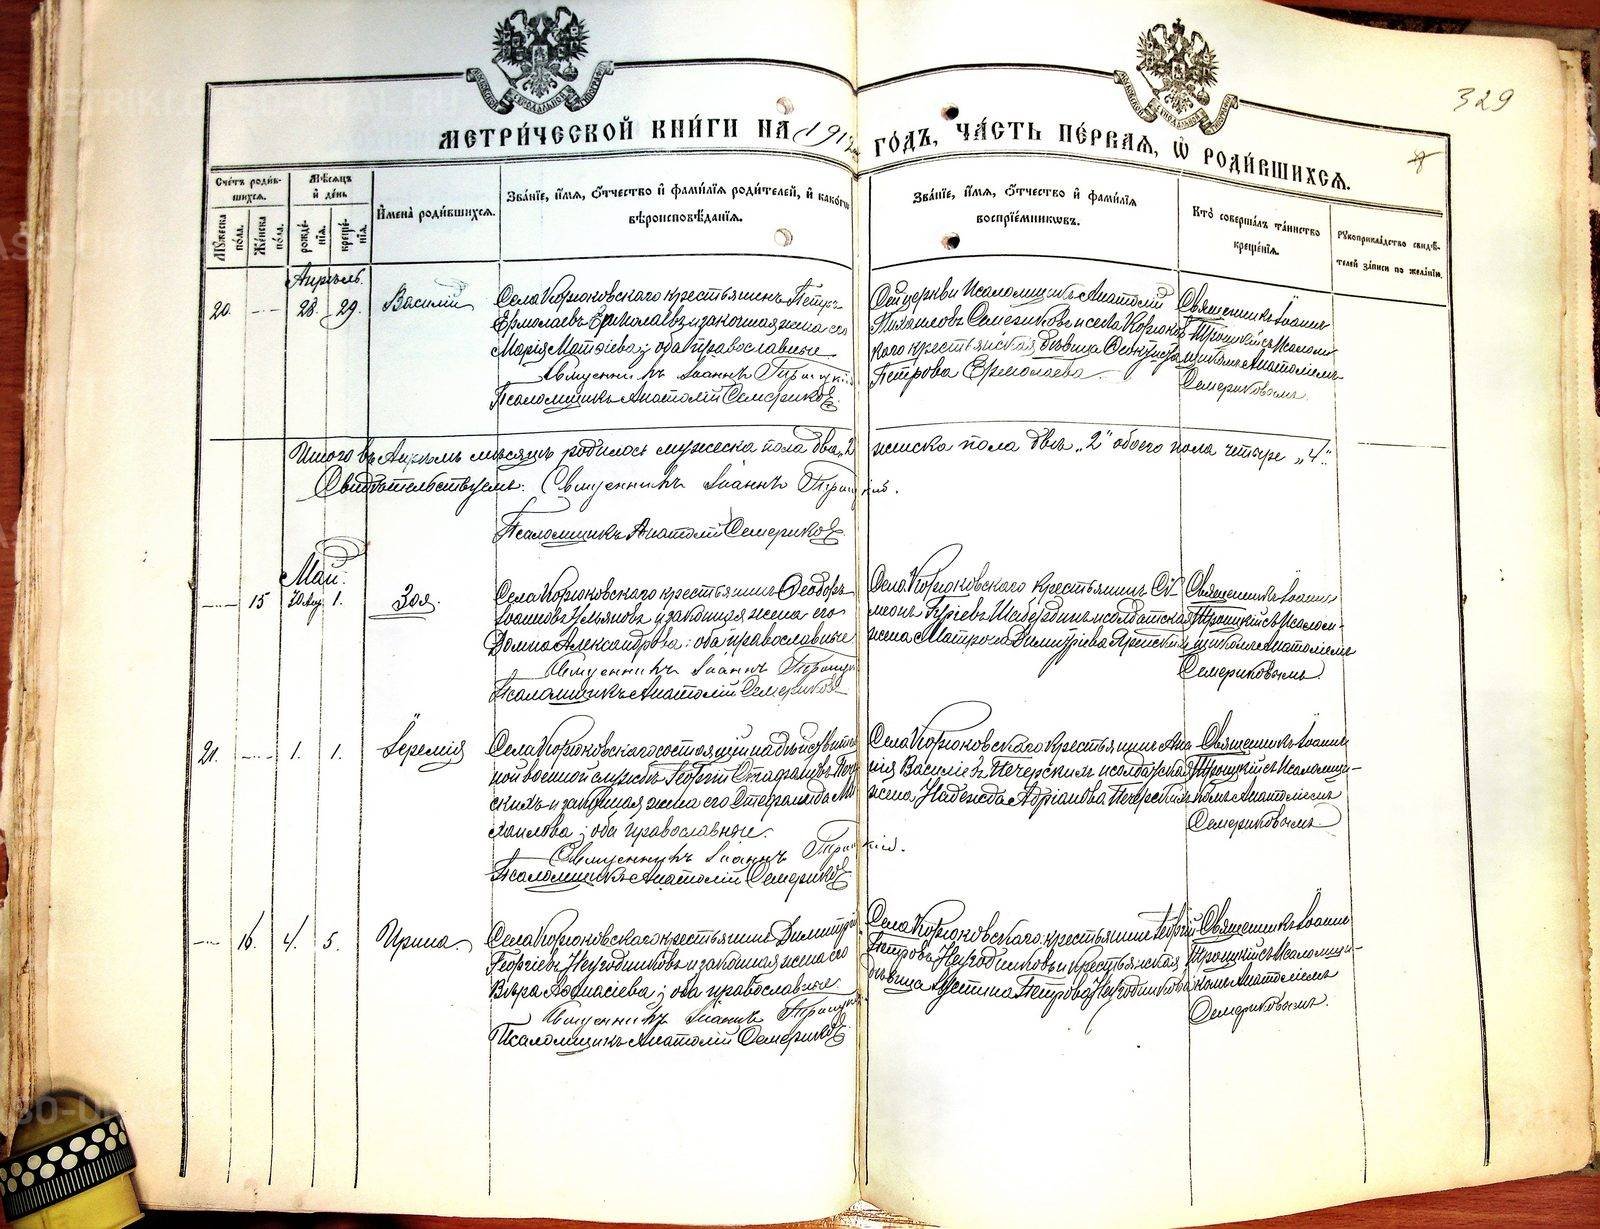 329
МЕТРИ́ЧЕСКОЙ КНИ́ГИ НА 1917 ГОДЪ, ЧА́СТЬ ПЕ́РВАЯ, Ѡ РОДИ́ВШИХСЯ.
Сче́тъ роди́в-
шихся.
Мѣ́сяцъ
и де́нь
Му́жеска по́ла.
Же́нска по́ла.
рожде́-
нія.
креще́-
нія.
И҆мена̀ роди́вшихся.
Зва́ніе, и҆́мя, ѻ҆́тчество и҆ фами́лія роди́телей, и҆ како́гѡ
вѣроисповѣ́данія.
Зва́ніе, и҆́мя, ѻ҆́тчество и҆ фами́лія
воспріе́мникѡвъ.
Кто̀ соверша́лъ та́инство
креще́нія.
Рукоприкла́дство свидѣ́-
телей за́писи по жела́нію.
Апрѣль.
20. 28. 29. Василій
Села Корюковскаго крестьянинъ Петръ
Ермолаевъ и законная жена его
Марія Матѳіева; оба православные
Священникъ Іоаннъ Троицкій
Псаломщикъ Анатолій Семериковъ
Сей церкви Псаломщикъ Анатолій
Михаиловъ Семериковъ и села Корюков-
скаго крестьянская дѣвица
Петрова Ермолаева.
Священникъ Іоаннъ
Троицкій съ Псалом-
щикомъ Анатоліемъ
Семериковымъ.
Итого въ Апрѣлѣ мѣсяцѣ родилось мужеска пола два „2 женска пола двѣ „2" обоего пола четыре „4".
Свидѣтельствуемъ: Священникъ Іоаннъ Троицкій.
Псаломщикъ Анатолій Семериковъ
Май.
15 1. Зоя.
Села Корюковскаго крестьянинъ Ѳеодоръ
Іоанновъ Ульяновъ и законная жена его
Домна Александрова; оба православные
Священникъ Іоаннъ Троицкій
Псаломщикъ Анатолій Семериковъ
Села Корюковскаго крестьянинъ Си-
меонъ и солдатская
жена Матрона Димитріева
Священникъ Іоаннъ
Троицкій съ Псалом-
щикомъ Анатоліемъ
Семериковымъ.
21. 1. 1. Іеремія
Села Корюковскаго состоящій на дѣйствитель-
ной военной службѣ Георгій Стефановъ Пече-
скихъ и законная жена его Стефанида Ми-
хаилова; оба православные.
Священникъ Іоаннъ Троицкій.
Псаломщикъ Анатолій Семериковъ
Села Корюковскаго крестьянинъ
Василіевъ Печерскихъ и солдатская
жена Надежда Адріанова
Священникъ Іоаннъ
Троицкій съ Псаломщи-
комъ Анатоліемъ
Семериковымъ.
16. 4. 5. Ирина.
Села Корюковскаго крестьянинъ Димитрій
Георгіевъ Негодниковъ и законная жена его
Вѣра Аѳанасіева; оба православные.
Священникъ Іоаннъ Троицкій
Псаломщикъ Анатолій Семериковъ
Села Корюковскаго крестьянинъ Георгій
Петровъ Негодниковъ и крестьянская
дѣвица Іустина Петрова Негодникова
Священникъ Іоаннъ
Троицкій съ Псаломщи-
комъ Анатоліемъ
Семериковымъ.